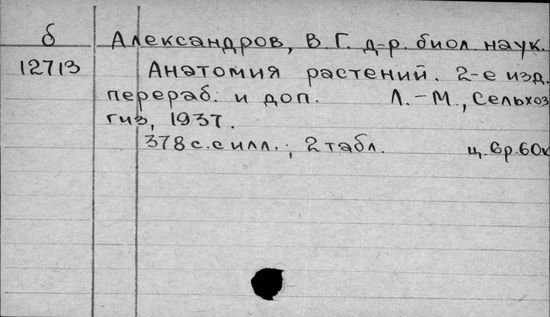 б Александров, В.Г. д-р. биол. наук.
12713 Анатомия растений. 2-е изд.
перераб. и доп. Л.-М., Сельхоз
гиз, 1937.
378 с. с илл.; 2 табл. ц. 6р. 60к